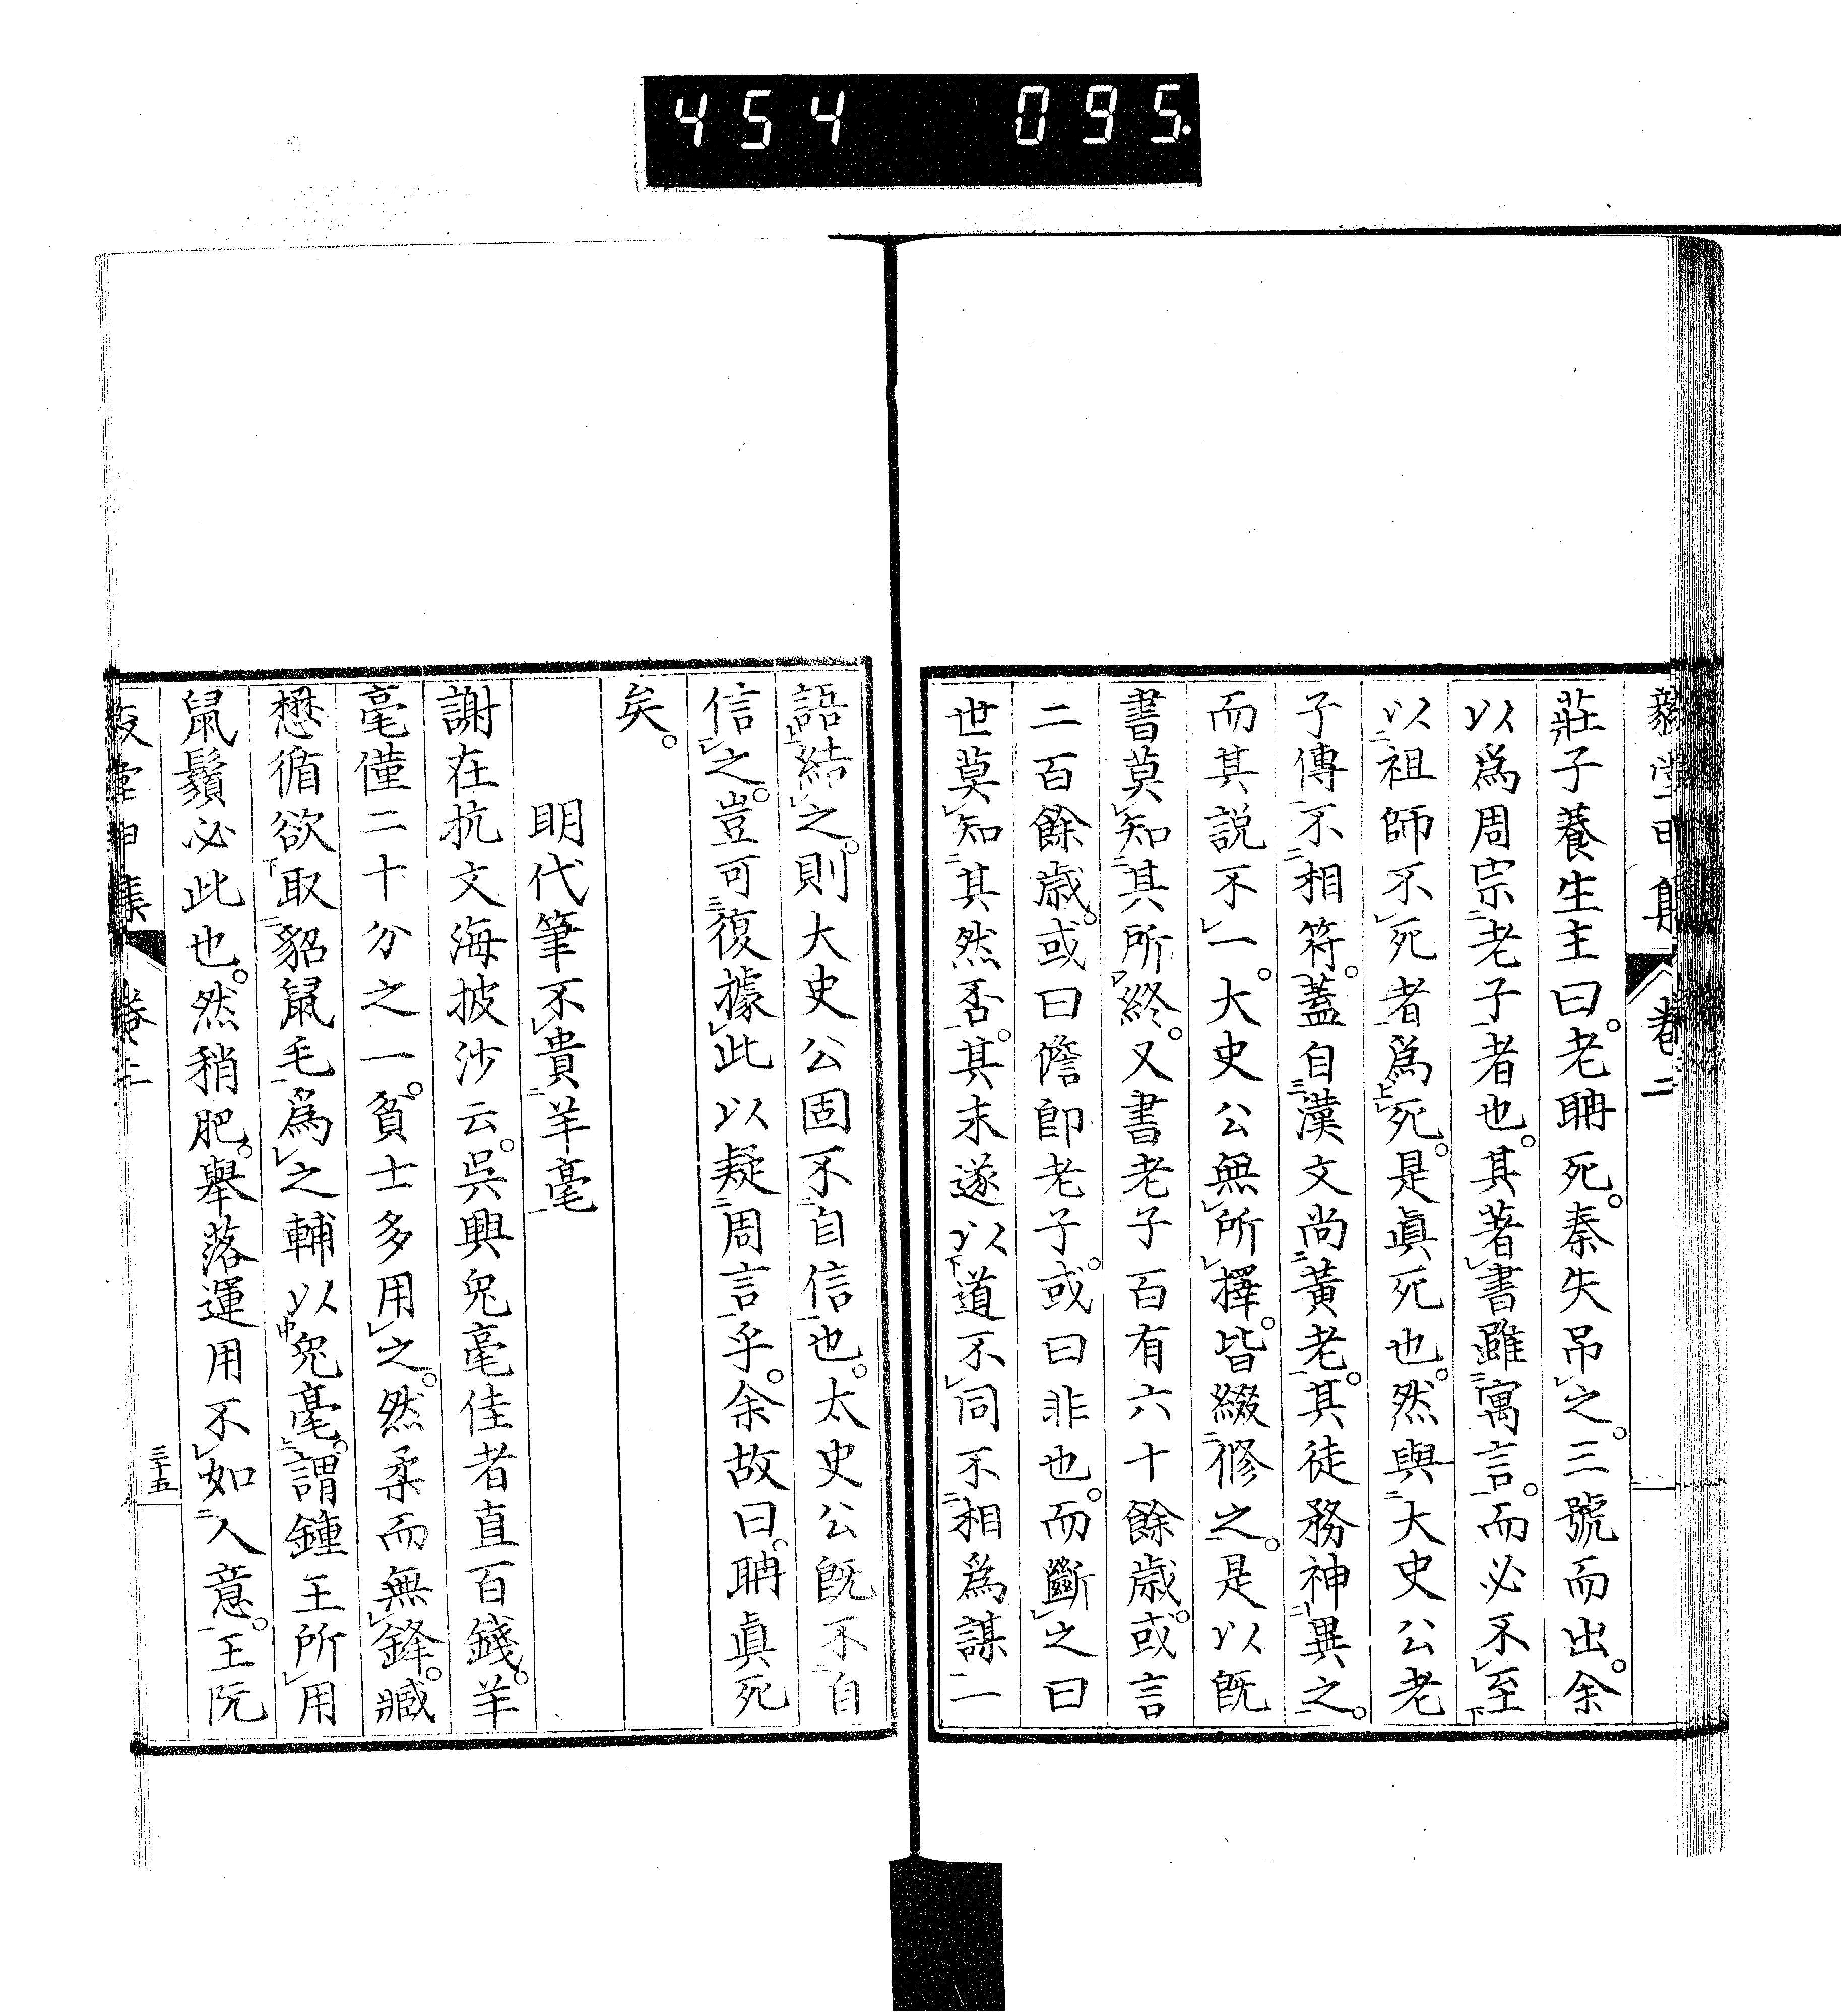 454 095
莊子養生主曰。老聃死。秦失吊之。三號而出。余
以爲周宗老子者也。其著書雖寓言。而必不至
以祖師不死者爲死。是眞死也。然與大史公老
子傳不相符。蓋自漢文尚黃老。其徒務神異之。
而其説不一。大史公無所擇。皆綴修之。是以既
書莫知其所終。又書老子百有六十餘歳。或言
二百餘歳。或曰儋卽老子。或曰非也。而斷之曰
世莫知其然否。其末遂以道不同不相爲謀一
語結之。則大史公固不自信也。太史公既不自
信之。豈可復據此以疑周言乎。余故曰。聃眞死
矣。
明代筆不貴羊毫
謝在抗文海披沙云。呉興兔毫佳者直百錢。羊
毫僅二十分之一。貧士多用之。然柔而無鋒。臧
懋循欲取貂鼠毛爲之輔以兔毫。謂鍾王所用
鼠鬚必此也。然稍肥。舉落運用不如人意。王阮
三十五